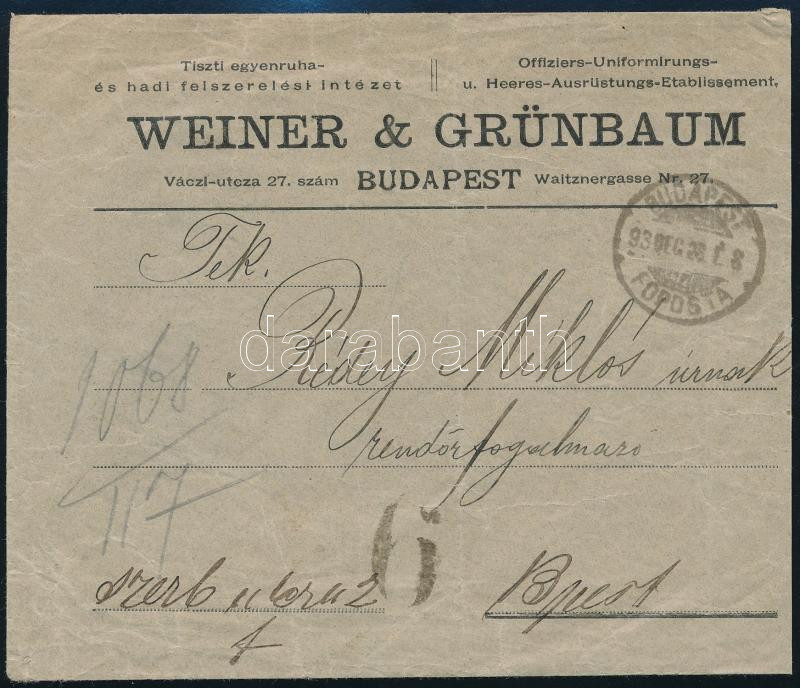 Tiszti egyenruha-
és hadi felszerelési intézet
Offiziers-Uniformirungs-
u. Heeres-Ausrüstungs-Etablissement.
WEINER & GRÜNBAUM
Váczi-utcza 27. szám BUDAPEST Waitznergasse Nr. 27.
BUDAPEST
93 DEC. 28. É. 8
FŐPOSTA
Tek.
darabanth
Miklós úrnak
1068
117
rendőrfogalmazó
6
szerb utcza
Bpest